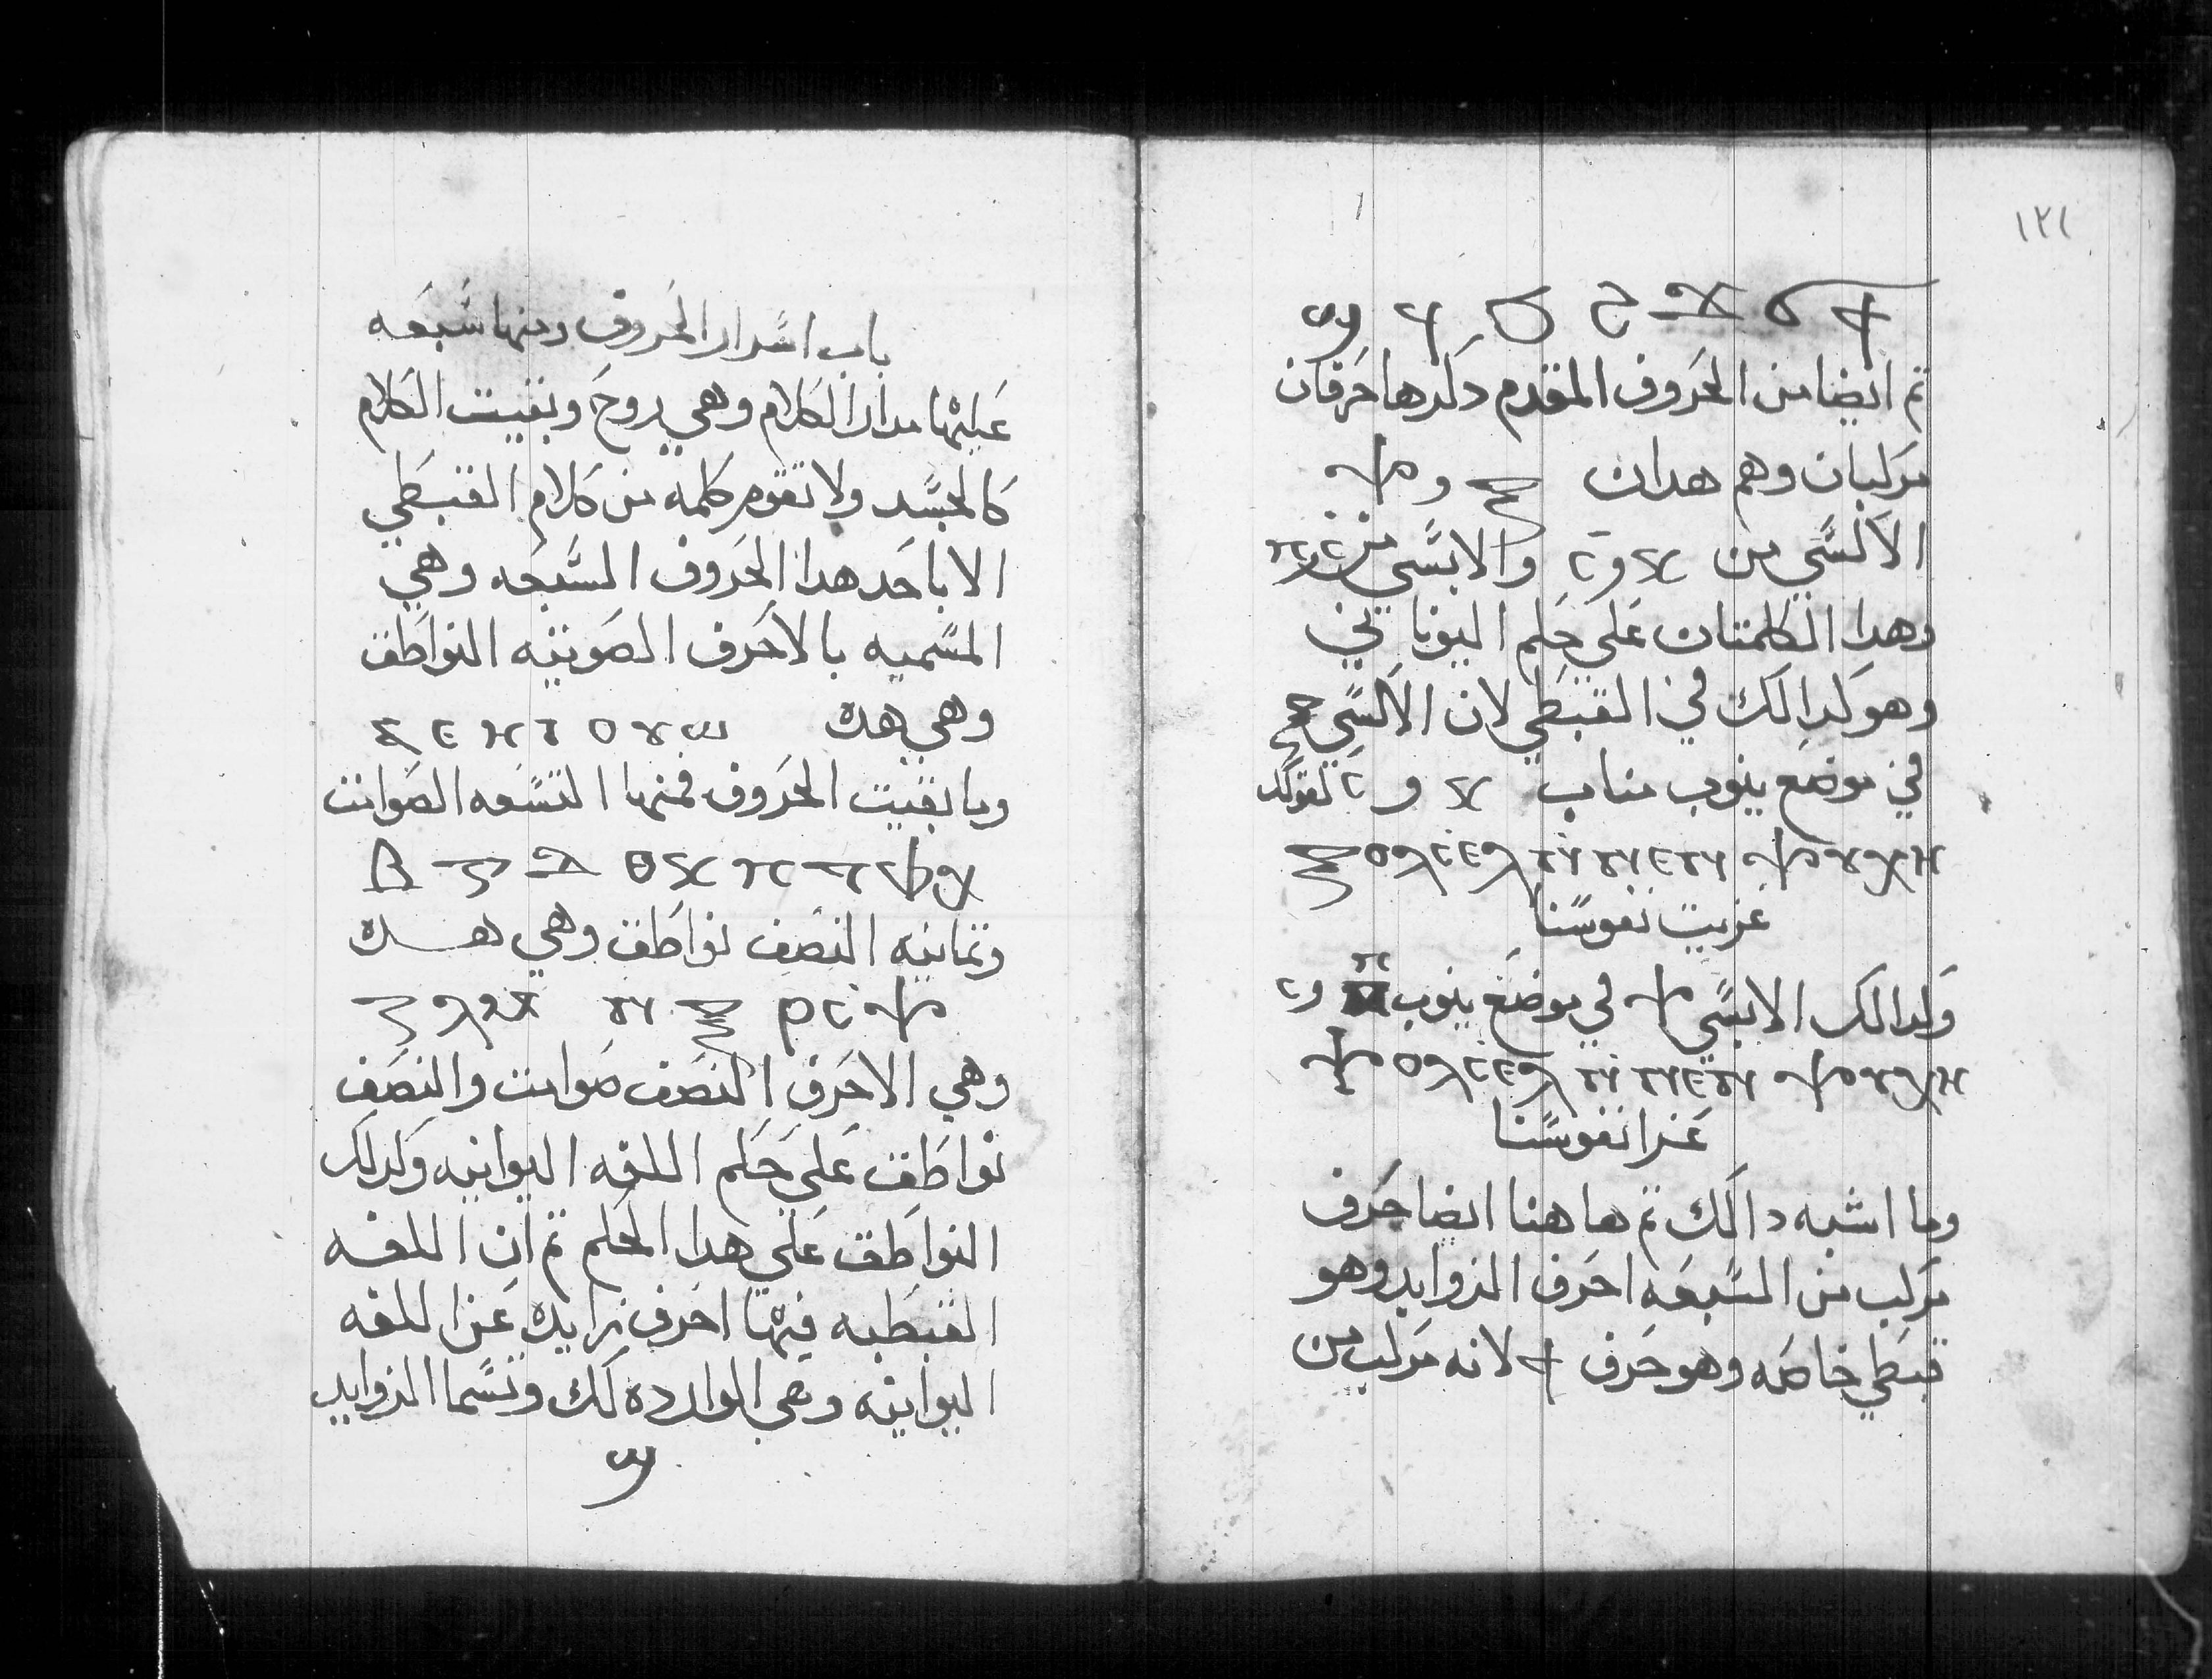 باب اسرار الحروف ومنها سبعه
عليها مدار الكلام وهي روح وبقيت الكلام
كالجسد ولا تقوم كلمه من كلام القبطي
الا باحد هدا الحروف السبعه وهي
المسميه بالاحرف الصوتيه النواطق
وهي هده ⲁ ⲉ ⲏ ⲓ ⲟ ⲩ ⲱ
وما بقيت الحروف فمنها التسعه الصوامت
ⲃ ⲅ ⲇ ⲑ ⲕ ⲡ ⲧ ⲫ ⲭ
وتمانيه النصف نواطق وهي هده
ⲍ ⲗ ⲙ ⲛ ⲝ ⲣ ⲥ ⲯ
وهي الاحرف النصف صوامت والنصف
نواطق علي حكم اللغه اليوانيه وكدلك
النواطق علي هدا الحكم تم ان اللغه
القبطيه فيها احرف زايده عن اللغه
اليوانيه وهي الوارده لك وتسما الزوايد
ϣ
١٢١
ϣ ϥ ϧ ϩ ϫ ϭ ϯ
تم ايضا من الحروف المقدم دكرها حرفان
مركبان وهم هدان ⲝ و ⲯ
الاكسي من ⲕ و ⲥ والابسي من ⲡ و ⲥ
وهدا الكلمتان علي حكم اليوناني
وهو كدالك في القبطي لان الاكسي ⲝ
في موضع ينوب مناب ⲕ و ⲥ كقولك
ⲝⲟⲗⲥⲉⲗ ⲛ̀ⲛⲉⲛⲯⲩⲭⲏ
عزيت نفوسنا
وكدالك الابسي ⲯ في موضع ينوب ⲡ و ⲥ
ⲯⲟⲗⲥⲉⲗ ⲛ̀ⲛⲉⲛⲯⲩⲭⲏ
عزا نفوسنا
وما اشبه دالك تم هاهنا ايضا حرف
مركب من السبعه احرف الزوايد وهو
قبطي خاصه وهو حرف ϯ لانه مركب من